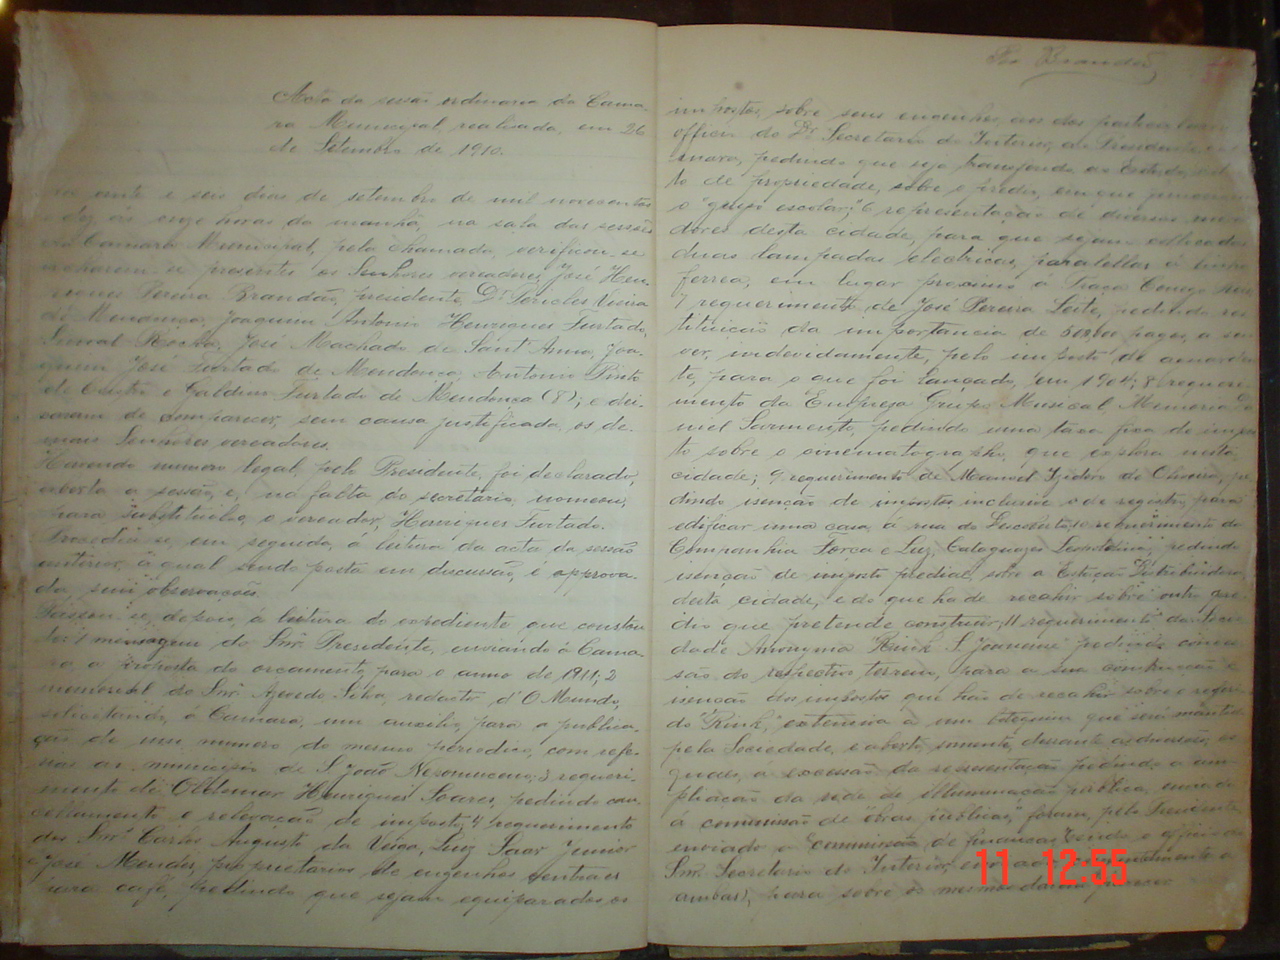 Acta da sessão ordinaria da Cama-
ra Municipal, realisada, em 26
de Setembro de 1910.
vinte e seis dias de setembro de mil novecentos
e dez, as onze horas da manhã, na sala das sessões
da Camara Municipal, pela chamada, verificou-se
acharem-se presentes os Senhores vereadores, José Hen-
riques Pereira Brandão, presidente, Dr Pericles Vieira
de Mendonça, Joaquim Antonio Henriques Furtado,
Rocha, José Machado de Sant'Anna, Joa-
quim José Furtado de Mendonça, Antonio Pinto
de e Galdino Furtado de Mendonça (8); e dei-
xaram de comparecer, sem causa justificada, os de-
mais Senhores vereadores.
Havendo numero legal, pelo Presidente, foi declarado,
aberta a sessão, e, na falta do secretario, nomeou,
para substituil-o, o vereador, Henriques Furtado.
Procedeu-se, em seguida, á leitura da acta da sessão
anterior, a qual sendo posta em discussão, é approva-
da, sem observações.
Passou-se, depois, á leitura do expediente que constou
mensagem do Snr. Presidente, enviando á Cama-
ra, a proposta do orçamento, para o anno de 1911; 2
memorial do Snr. Azevedo Silva, redactor d'O Mundo,
solicitando, á Camara, um auxilio, para a publica-
ção de um numero do mesmo periodico, com refe-
ao municipio de S. João Nepomuceno; 3 requeri-
mento de Oldemar Henriques Soares, pedindo can-
cellamento e relevação de imposto; 4 requerimento
dos Snrs Carlos Augusto da Veiga, Luiz Junior
e José Mendes, proprietarios de engenhos centraes
para café, pedindo que sejam equiparados os
Brandão
impostos, sobre seus engenhos, aos dos particulares;
officio do Dr Secretario do Interior, ao Presidente
pedindo que seja transferido ao Estado,
to de propriedade, sobre o predio, em que funcciona
o "grupo escolar;" 6 representação de diversos mora-
dores desta cidade, para que sejam collocadas
duas lampadas electricas, parallelas á linha
ferrea, em lugar proximo a Praça
7 requerimento de José Pereira Leite, pedindo res-
tituição da importancia de pagos, a seu
ver, indevidamente, pelo imposto de aguarden-
te, para o que foi lançado, em 1904; 8 requeri-
mento da Empreza Grupo Musical, Memoria Da-
niel Sarmento, pedindo uma taxa fixa de impos-
to sobre o cinematographo, que explora nesta
cidade; 9 requerimento de Manoel Izidoro de Oliveira, pe-
dindo isenção de impostos, inclusive o de registro, para
edificar uma casa, á rua do 10 requerimento da
Companhia Força e Luz, Cataguazes Leopoldina, pedindo
isenção de imposto predial, sobre a Estação Distribuidora,
desta cidade, e do que ha de recahir sobre outro pre-
dio que pretende construir; 11 requerimento da Socie-
dade Anonyma "Rink S. Joanense" pedindo conces-
são do respectivo terreno, para a sua construcção e
isenção dos impostos que hão de recahir sobre o referi-
do "Rink," extensiva a um botequim que será mantido
pela Sociedade, e aberto, somente, durante as diversões, os
quaes, á excessão da representação pedindo a am-
pliação da rede de illuminação publica,
á commissão de obras publicas, foram, pelo Presidente,
enviado a commissão de finanças, tendo o officio do
Snr. Secretario do Interior,
ambas), para sobre os mesmos
11 12:55